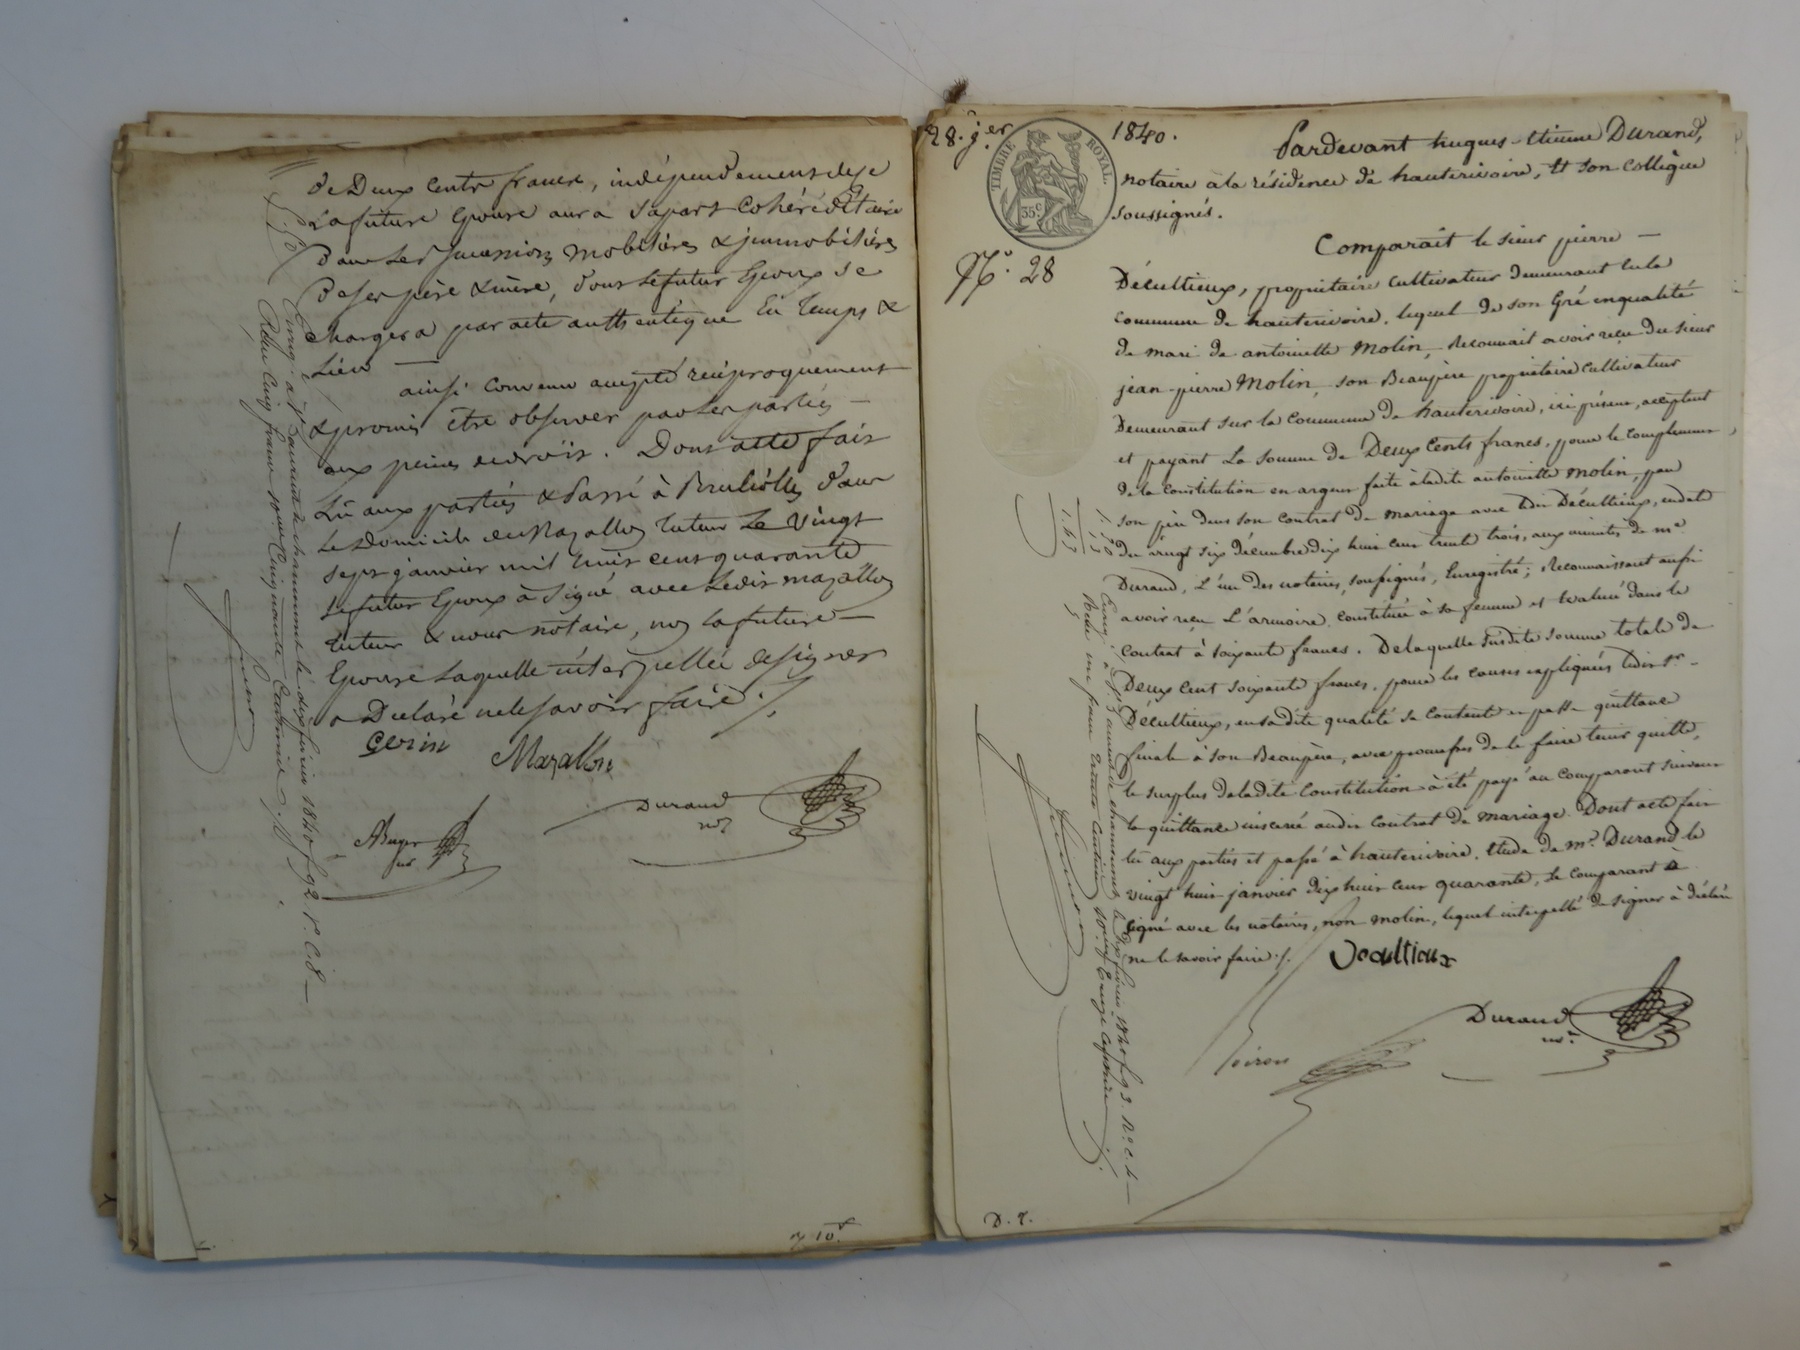 de Deux Cents francs, indépendemment de ce
La future Epouse aura sa part Cohéréditaire
Dans Les Successions mobilières & immobilières
De ses père & mère, dont Le futur Epoux se
chargera par acte authentique En Temps &
Lieu —
ainsi convenu accepté réciproquement
& promis être observer par Les parties —
aux peines de droit. Dont acte fait
Lû aux parties & Passé à Brullioles dans
Le Domicile du Mazallon Tuteur Le Vingt
sept janvier mil huit cent quarante
Le futur Epoux à Signé avec Ledit mazallon
tuteur & nous notaire, non La future —
Epouse Laquelle interpellée de signer
a Déclaré ne le savoir faire ./.
Gerin Mazallon
Durand
nre
28. jer 1840.
TIMBRE ROYAL.
35c
No. 28
Pardevant hugues-Etienne Durand,
notaire à la résidence de hauterivoire, Et son collègue
soussignés.
Comparaît le sieur pierre —
Décultieux, propriétaire cultivateur demeurant en la
commune de hauterivoire. lequel de son Gré en qualité
de mari de antoinette Molin, Reconnait avoir reçu du sieur
jean-pierre Molin, son Beaupère propriétaire cultivateur
Demeurant sur la Commune de hauterivoire, ici présent, acceptant
et payant La Somme de Deux Cents francs, pour le complément
de la Constitution en argent faite à ladite antoinette Molin, par
son père dans son contrat de mariage avec Ledit Décultieux, en date
du vingt six décembre dix huit cent trente trois, aux minutes de me
Durand, L'un des notaires soussignés, Enregistré; Reconnaissant aussi
avoir reçu L'armoire constituée à sa femme et Evaluée dans le
Contrat à soixante francs. De laquelle susdite somme totale de
Deux cent soixante francs, pour les causes expliquées ledit Sr —
Décultieux, en sadite qualité se Contente en passe quittance
finale à son Beaupère, avec promesses de le faire tenir quitte,
le surplus de ladite Constitution à été payé au Comparant suivant
la quittance insérée audit contrat de mariage. Dont acte fait
lu aux parties et passé à hauterivoire, Etude de me. Durand le
vingt huit janvier dix huit cent quarante, le comparant à
signé avec les notaires, non molin, lequel interpellé de signer à déclaré
ne le savoir faire ./. Decultieux
Durand
nre.
D. 2.